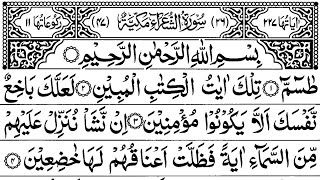 اٰیَاتُهَا ۲۲۷ (۲۶) سُوْرَةُ الشُّعَرَآءِ مَكِّيَّةٌ (۴۷) رُكُوْعَاتُهَا ۱۱
بِسْمِ اللّٰهِ الرَّحْمٰنِ الرَّحِيْمِ
طٰسٓمّٓ ۝۱ تِلْكَ اٰيٰتُ الْكِتٰبِ الْمُبِيْنِ ۝۲ لَعَلَّكَ بَاخِعٌ
نَّفْسَكَ اَلَّا يَكُوْنُوْا مُؤْمِنِيْنَ ۝۳ اِنْ نَّشَاْ نُنَزِّلْ عَلَيْهِمْ
مِّنَ السَّمَآءِ اٰيَةً فَظَلَّتْ اَعْنَاقُهُمْ لَهَا خٰضِعِيْنَ ۝۴